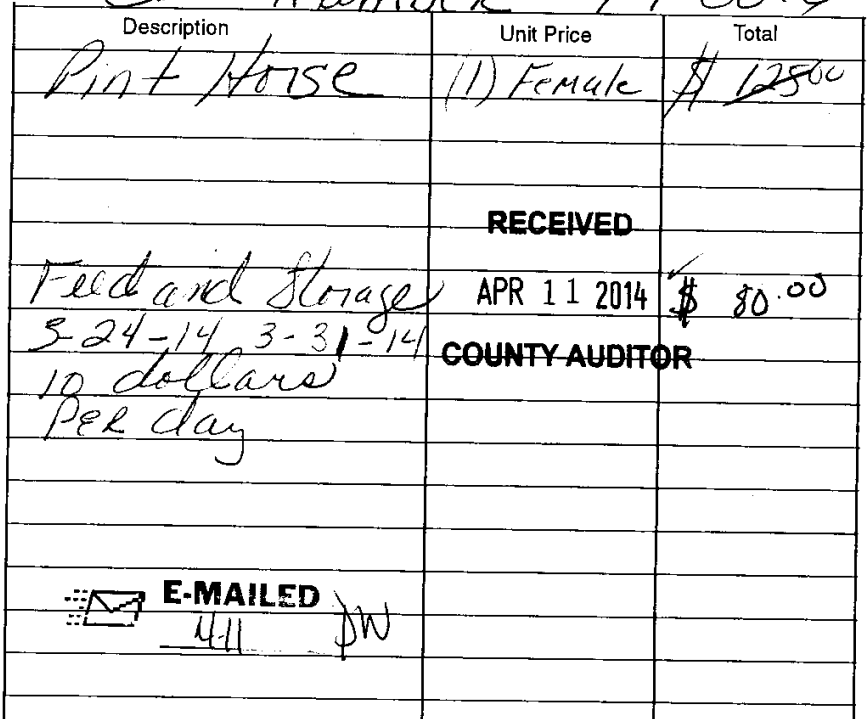 Description Unit Price Total
Pint Horse (1) Female $ 12500
RECEIVED
Feed and Storage APR 11 2014 $ 80.00
3-24-14 3-31-14
COUNTY AUDITOR
10 dollars
PER day
E-MAILED
4-11 DW